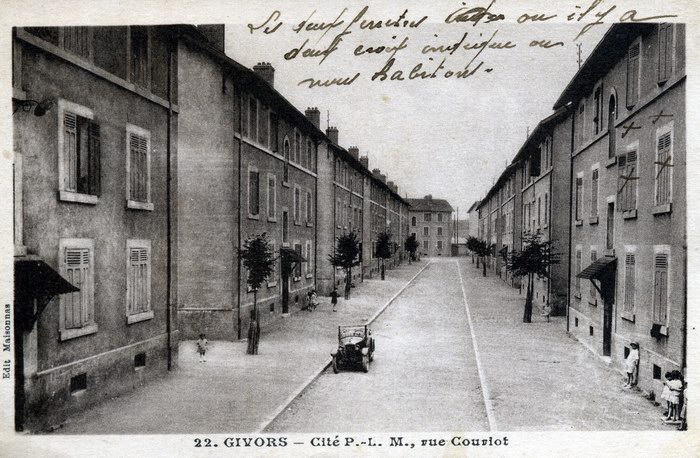 Les deux fenetres ou il y a
deux croix indique ou
nous habitons.
Edit Maisonnas
22. GIVORS — Cité P.-L. M., rue Couriot